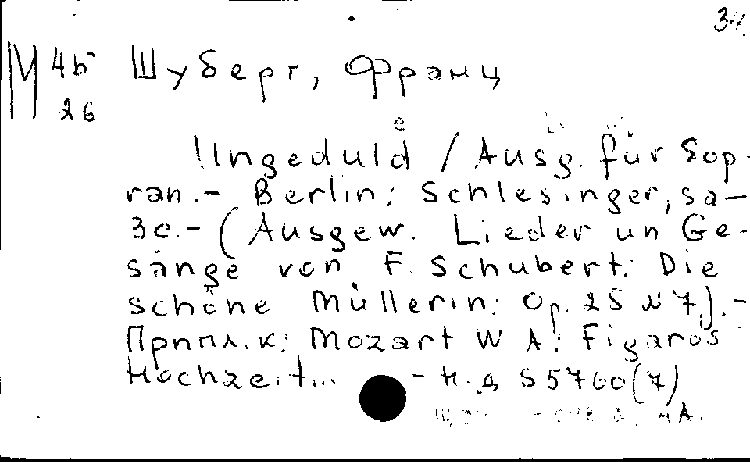 34
М 45 Шуберт, Франц
26
Ungeduld / Ausg. für Sop-
ran. - Berlin: Schlesinger, sa-
3c. - (Ausgew. Lieder un Ge-
sänge von F. Schubert: Die
schöne Müllerin: Op. 25 N 7.). -
Припл. к: Mozart W A: Figaros
Hochzeit... - н. д S 5760 (7)